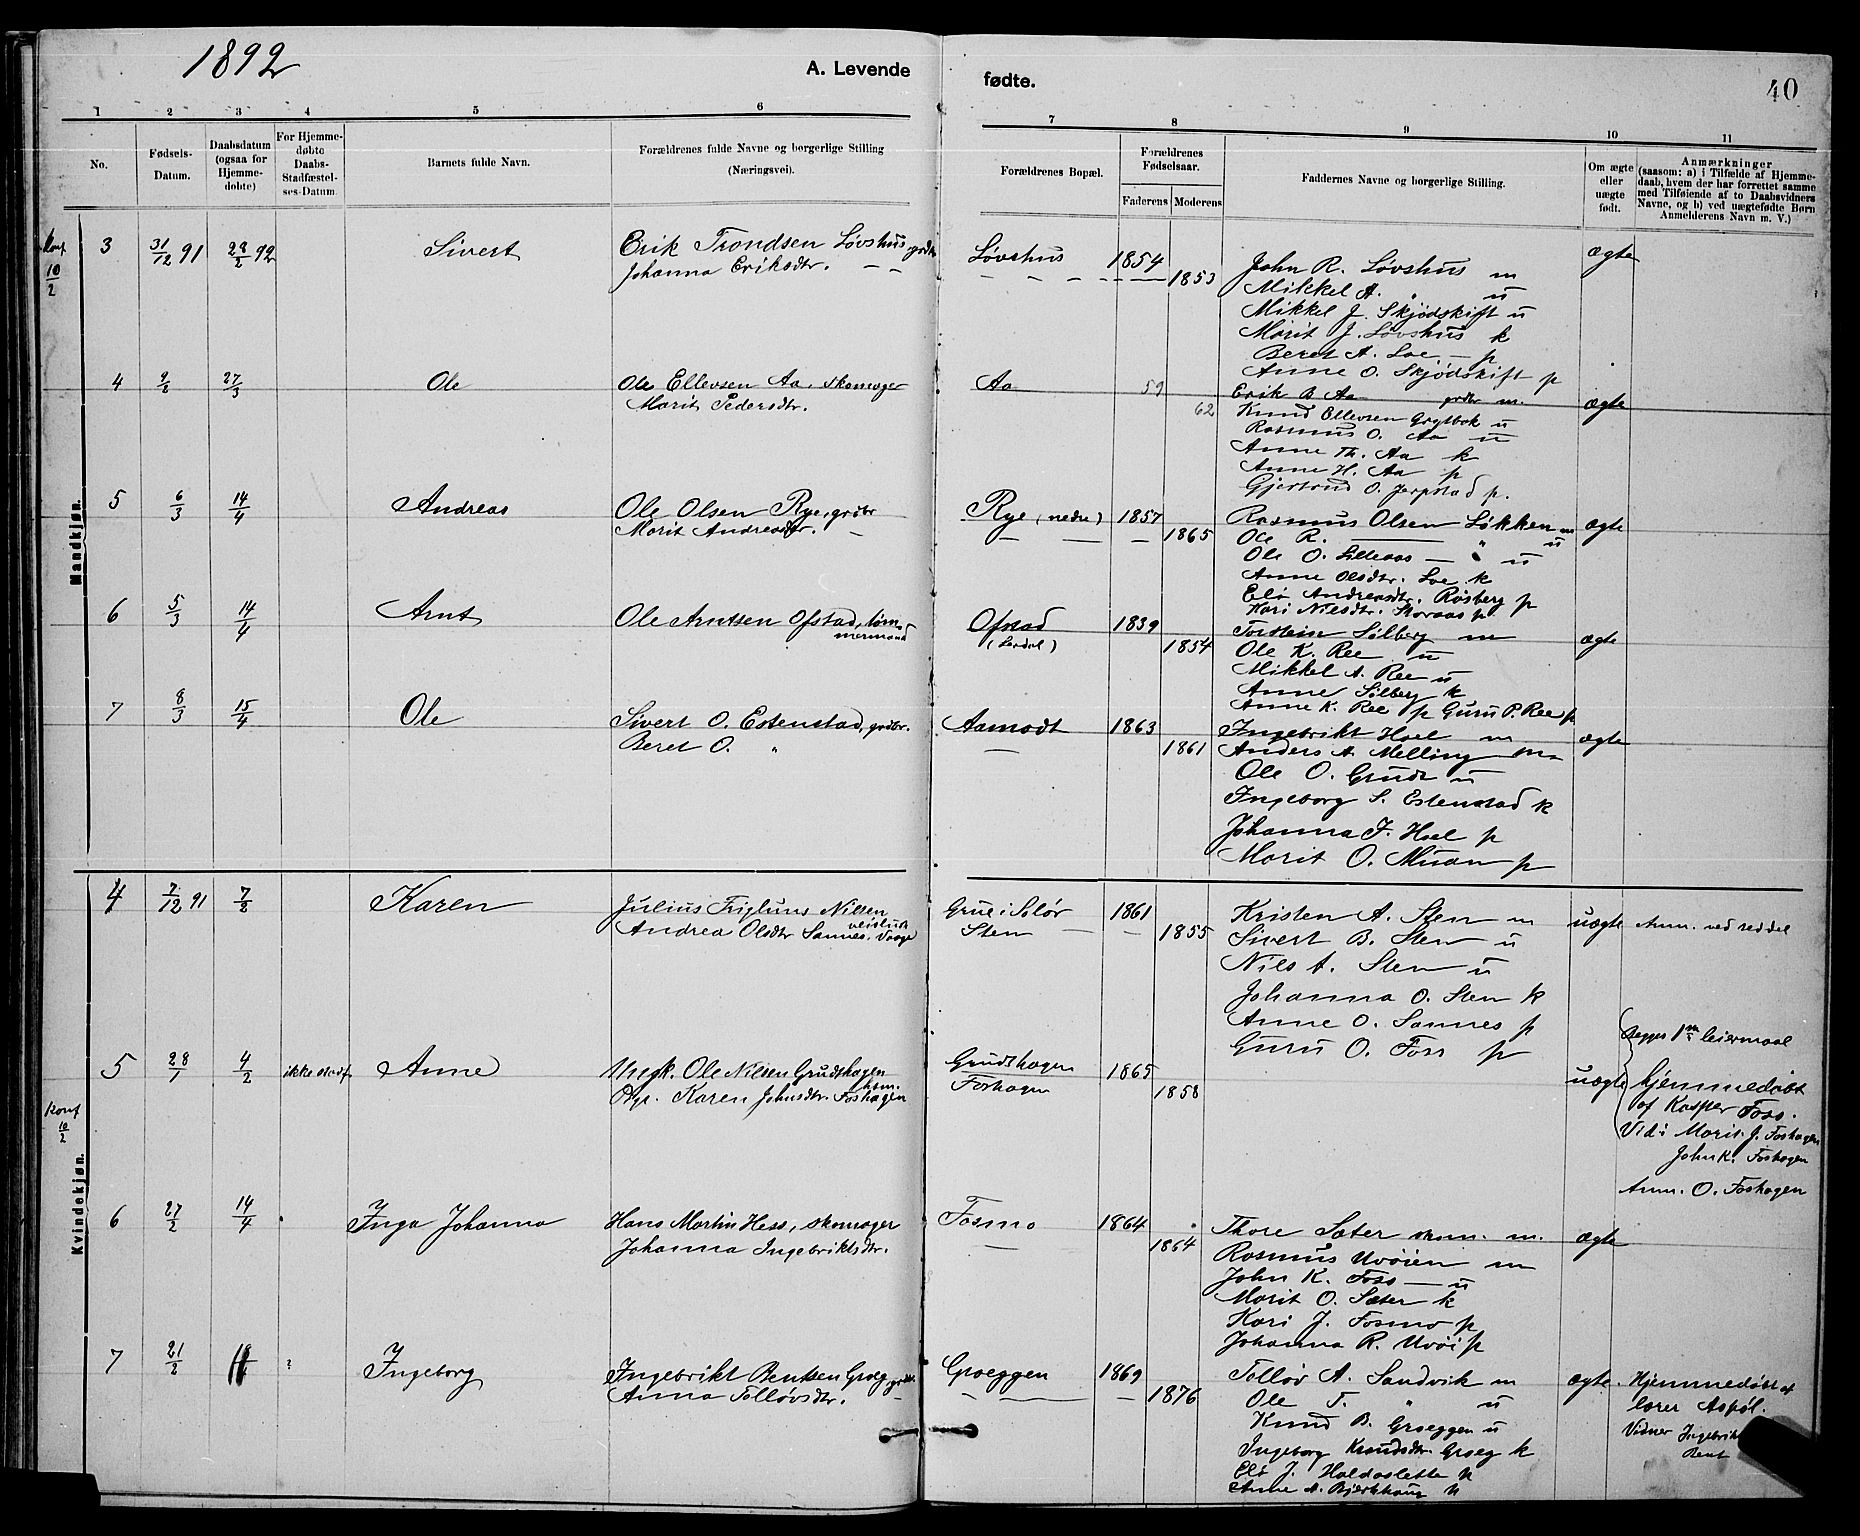 1892
A. Levende
fødte.
40
1 2 3 4 5 6 7 8 9 10 11
No.
Fødsels-Datum.
Daabsdatum (ogsaa for Hjemmedøbte)
For Hjemmedøbte Daabs-Stadfæstelses-Datum.
Barnets fulde Navn.
Forældrenes fulde Navne og borgerlige Stilling (Næringsvei).
Forældrenes Bopæl.
Forældrenes Fødselsaar.
Faderens Moderens
Faddernes Navne og borgerlige Stilling.
Om ægte eller uægte født.
Anmærkninger
(saasom: a) i Tilfælde af Hjemme-
daab, hvem der har forrettet samme
med Tilføiende af to Daabsvidners
Navne, og b) ved uægtefødte Børn
Anmelderens Navn m. V.)
Mandkjøn.
Konf 10/2
3 31/12 91 28/2 92 Sivert Erik Trondsen Løvshus, grdbr Løvshus 1854 ægte
Johanna Eriksdtr. — — 1853
John R. Løvshus m
Mikkel A. " u
Mikkel J. Skjødskift u
Marit J. Løvshus k
Beret A. Loe — p
Anne O. Skjødskift p
4 9/2 27/3 Ole Ole Ellevsen Aa, skomager Aa 59 ægte
Marit Pedersdtr. 62
Erik B Aa grdbr m.
Knud Ellevsen Grytbak u
Rasmus O. Aa u
Anne Th. Aa k
Anne H. Aa p
Gjertrud O. Jerpstad p.
5 6/3 14/4 Andreas Ole Olsen Rye, grdbr Rye (nedre) 1857 ægte
Marit Andreasdtr. — 1865
Rasmus Olsen Løkken m
Ole R. — " u
Ole O. Lilleaas — u
Anne Olsdtr. Loe k
Eli Andreasdtr. Rosberg p
Kari Nilsdtr. Skoraas p.
6 5/3 14/4 Arnt Ole Arntsen Ofstad, tømmermand Ofstad 1839 ægte
1854
Torstein Sølberg m
Ole K. Ree u
Mikkel A. Ree u
Anne Sølberg k
Anne K. Ree p Guru P. Ree p.
7 8/3 15/4 Ole Sivert O. Estenstad, grdbr. Aamodt 1863 ægte
Beret O. " — 1861
Ingebrikt Hoel m
Anders A. Melling m
Ole O. Grudt u
Ingeborg S. Estenstad k
Johanna J. Hoel p
Marit O. Muan p
Kvindekjøn.
4 7/12 91 7/2 Karen Julius Nilsen Grue i Solør 1861 uægte Anm. ved seddel
Andrea Olsdtr Sannes, Vaage Sten 1855
Kristen A. Sten m
Sivert B. Sten u
Nils A. Sten u
Johanna O. Sten k
Anne O. Sannes p
Guru O. Foss p
Konf 10/2
5 28/1 4/2 ikke stadf Anne Ungk. Ole Nilsen Grudthagen Grudthagen 1865 uægte
Pige Karen Johnsdtr. Foshagen Foshagen 1858
Begges 1ste leiermaal
hjemmedøbt
af Kasper Foss.
Vid: Marit J. Foshagen
John K. Foshagen
Anm. O. Foshagen
6 27/2 14/4 Inga Johanna Hans Martin Hess, skomager Fosmo 1864 ægte
Johanna Ingebriktsdtr. — 1864
Thore Sæter skom. m.
Rasmus Uvøien m
John K. Foss — u
Marit O. Sæter k
Kari J. Fosmo p
Johanna R. Uvøi p
7 21/2 Ingeborg Ingebrikt Bentsen Groeg, grdbr. Groeggen 1869 ægte.
Anna Tolløvsdtr. — — 1876
Tolløv A. Sandvik m
Ole T. " u
Knud B. Groeggen u
Ingeborg Knudsdtr. Groeg k
Eli J. Haldosletta p
Anne A. Bjerkhaug p
Hjemmedøbt af
lærer Aspøl.
Vidner Ingebrikt
Bent